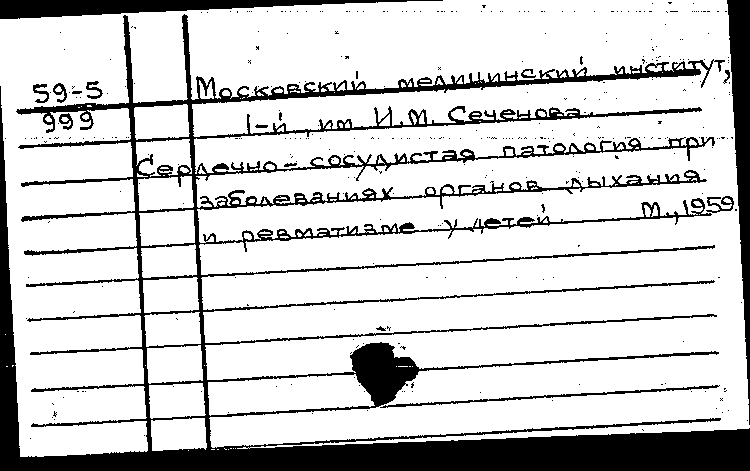 59-5
999
Московский медицинский институт,
I-й, им И.М. Сеченова.
Сердечно-сосудистая патология при
заболеваниях органов дыхания
и ревматизме у детей. М., 1959.